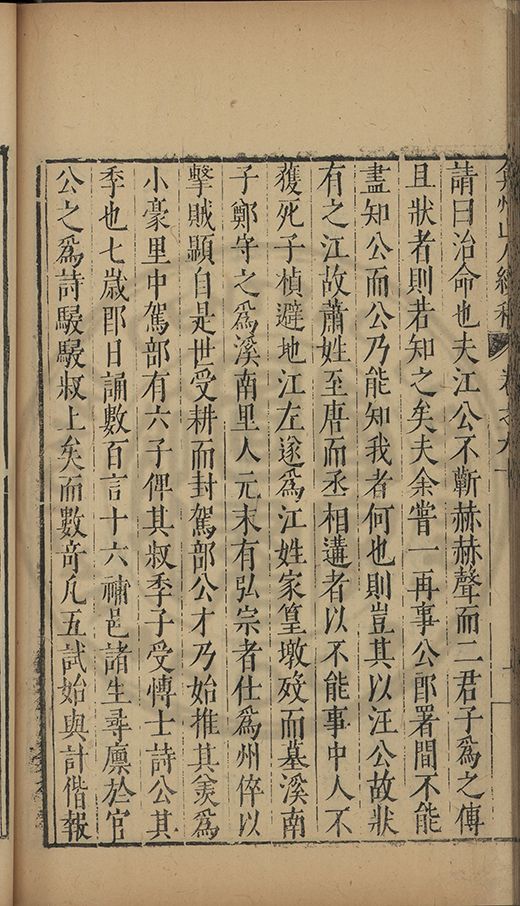 弇州山人續稿 卷之九十
請曰治命也夫江公不蘄赫赫聲而二君子爲之傳
且狀者則若知之矣夫余嘗一再事公郎署間不能
盡知公而公乃能知我者何也則豈其以汪公故狀
有之江故蕭姓至唐而丞相遘者以不能事中人不
獲死子楨避地江左遂爲江姓家篁墩歿而墓溪南
子鄭守之爲溪南里人元末有弘宗者仕爲州倅以
擊賊顯自是世受耕而封駕部公才乃始推其羨爲
小豪里中駕部有六子俾其叔季子受慱士詩公其
季也七歲郎日誦數百言十六補邑諸生尋廩於官
公之爲詩駸駸叔上矣而數奇凡五試始與計偕報